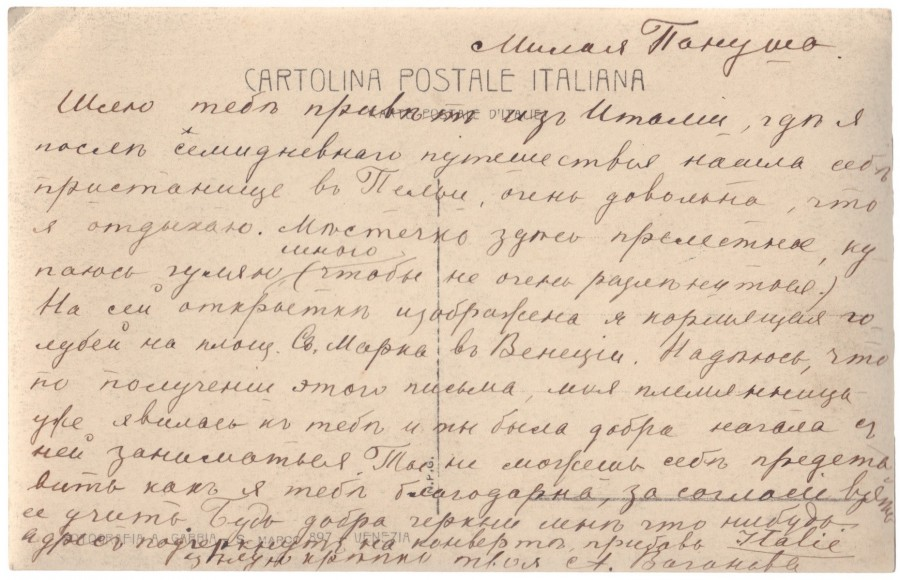 Милая Пануша
CARTOLINA POSTALE ITALIANA
Шлю тебѣ привѣтъ изъ Италіи, гдѣ я
CARTE POSTALE D'ITALIE
послѣ семидневнаго путешествія нашла себѣ
пристанище въ Пельи, очень довольна, что
я отдыхаю. Мѣстечко здѣсь прелестное, ку
паюсь гуляю много (чтобы не очень разлѣнуться.)
На сей открыткѣ изображена я кормящая го
лубей на площ. Св. Марка въ Венеціи. Надѣюсь, что
по полученіи этого письма, моя племянница
уже явилась къ тебѣ и ты была добра начала съ
ней заниматься. Ты не можешь себѣ предста
вить какъ я тебѣ благодарна, за согласіе взять
ее учить Будь добра черкни мнѣ что нибудь.
FOTOGRAFIA A. GABBIA S. MARCO 897 VENEZIA
адресъ подчеркнутъ на конвертѣ, прибавь Italie
цѣлую крѣпко твоя А. Ваганова